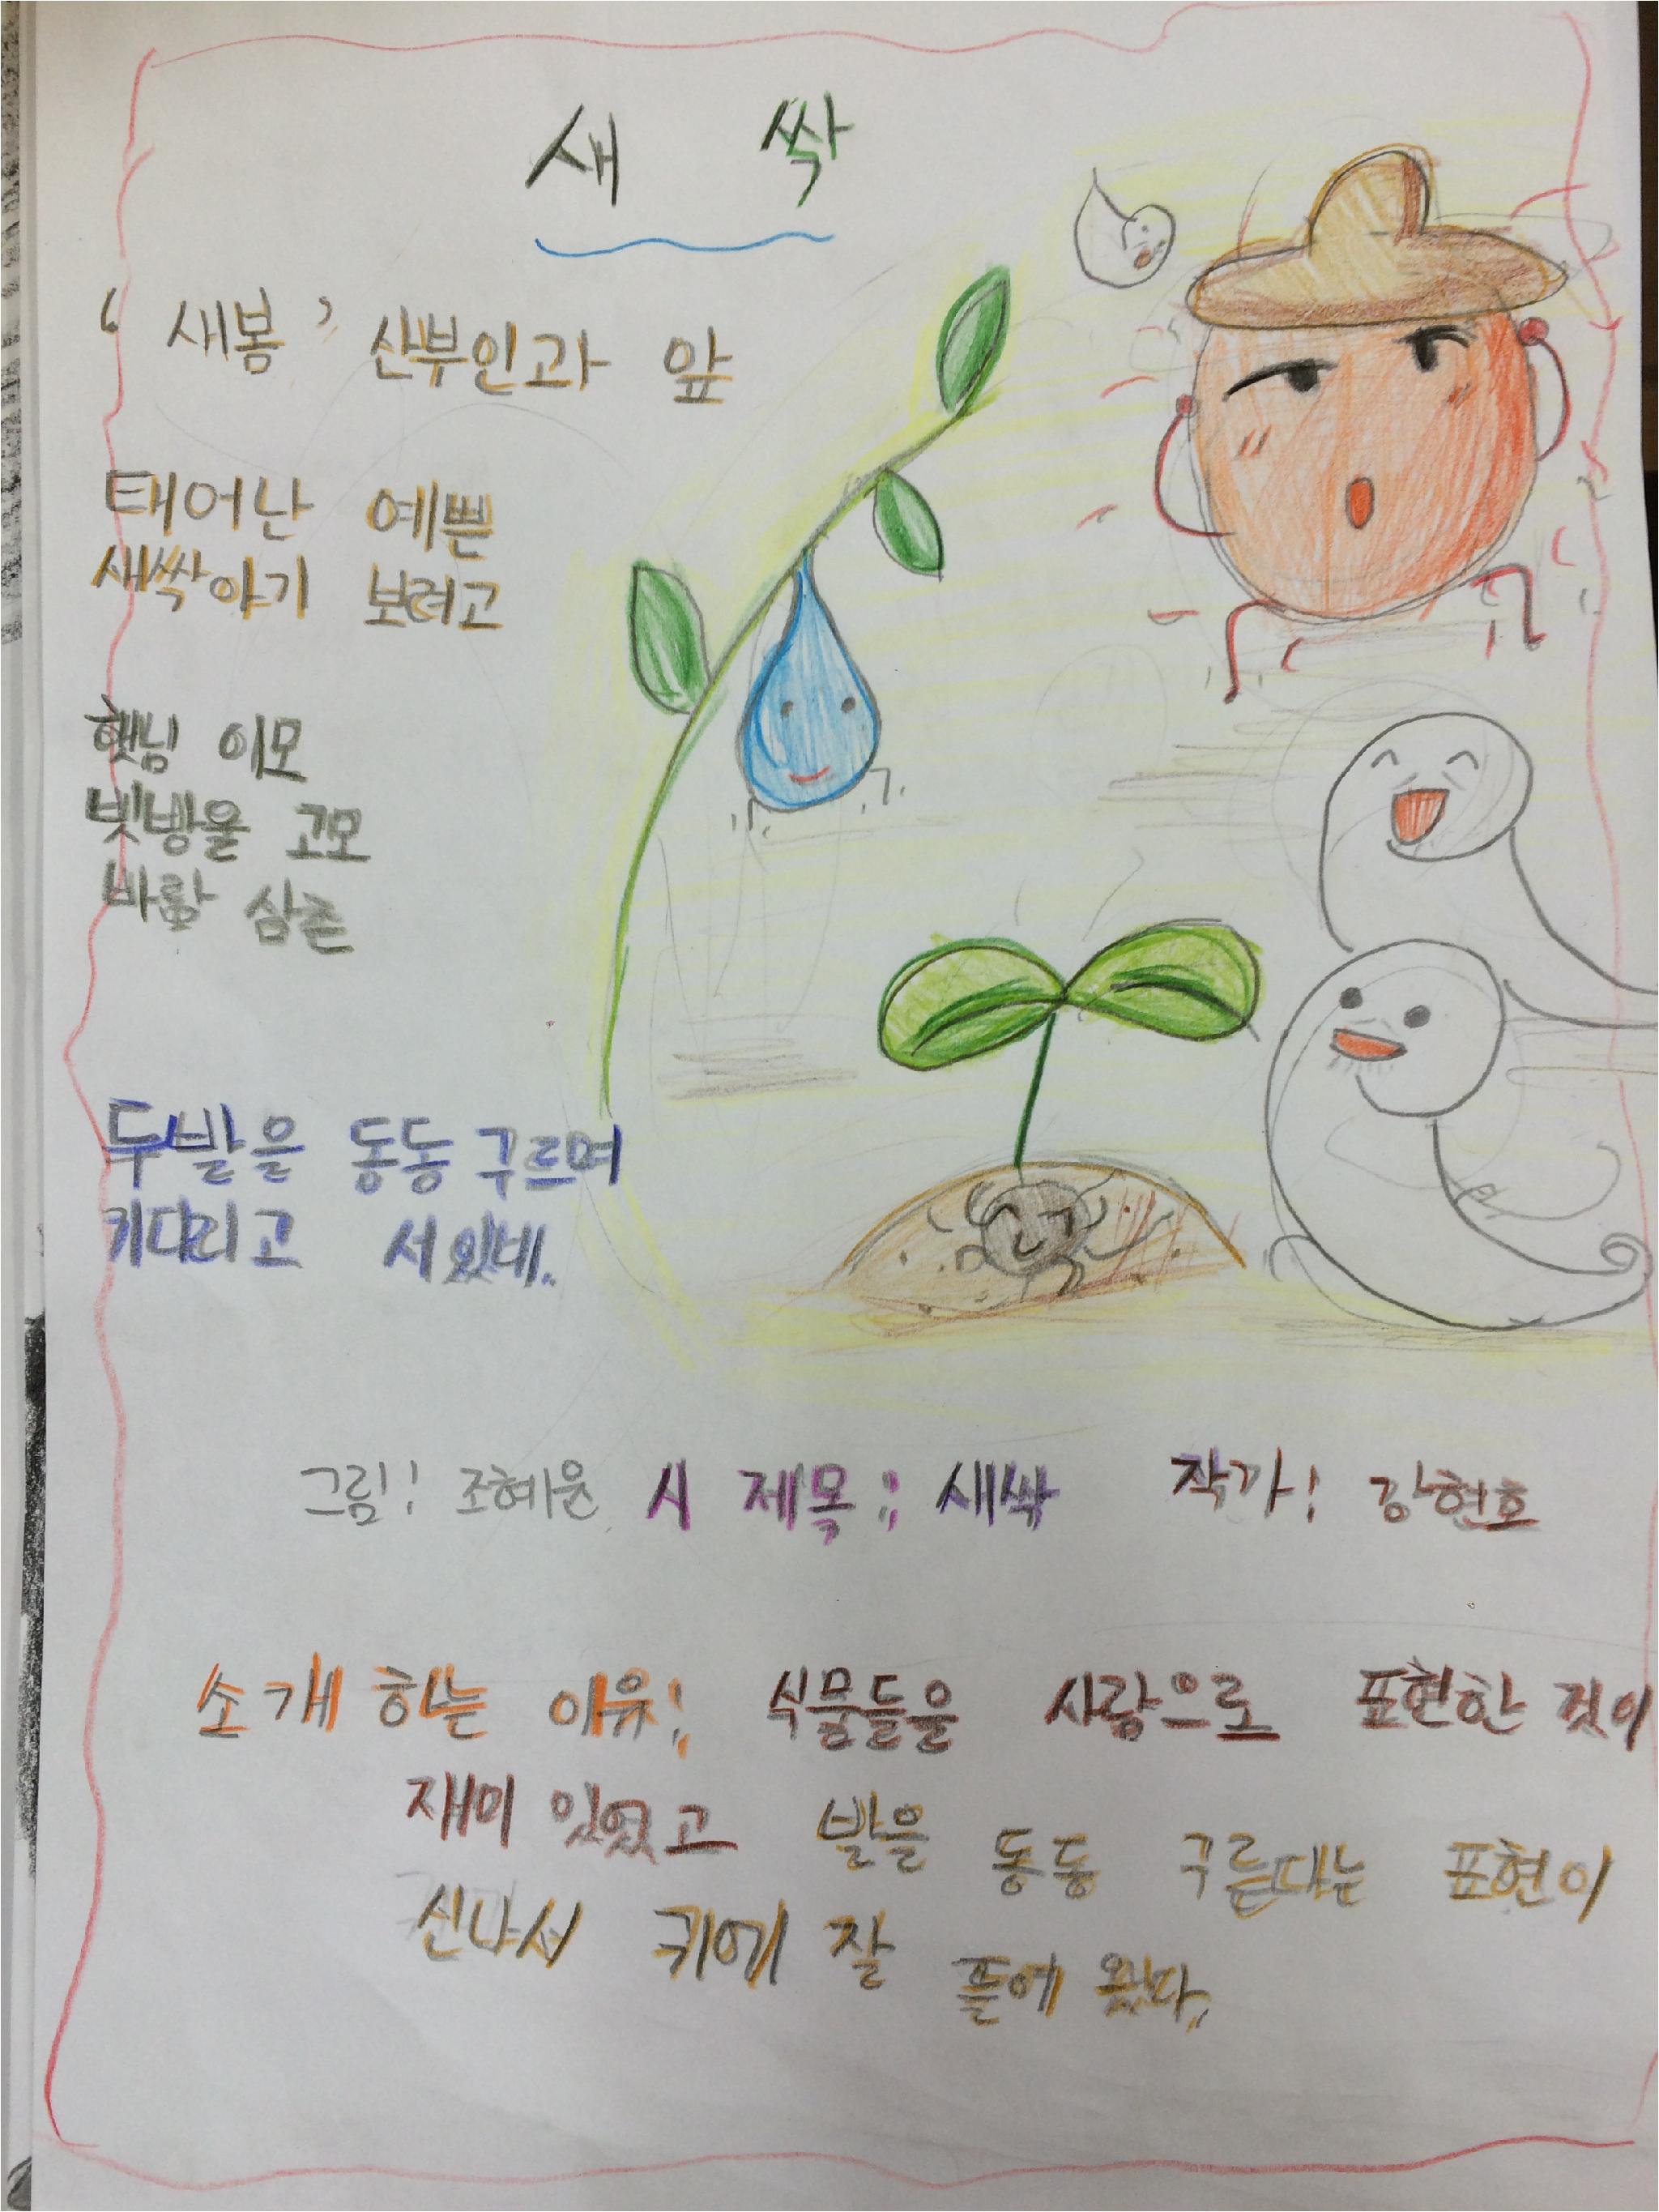 새 싹
‘새봄’ 산부인과 앞
태어난 예쁜
새싹아기 보려고
햇님 이모
빗방울 고모
바람 삼촌
두발을 동동 구르며
키다리고 서있네..
그림: 조혜윤 시 제목; 새싹 작가: 강현호
소개 하는 이유; 식물들을 사람으로 표현한 것이
재미 있었고 발을 동동 구른다는 표현이
신나서 귀에 잘 들어 왔다,